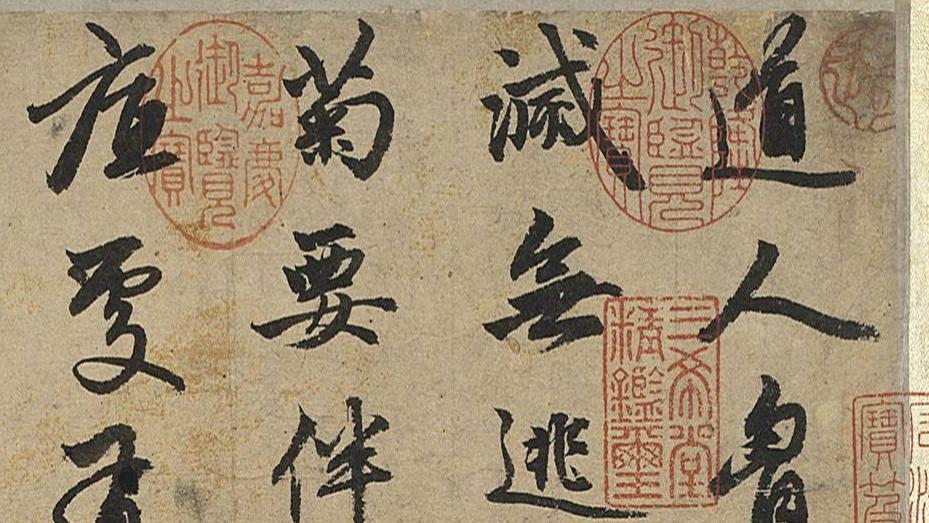 道人胷
滅無逃
菊要伴
底處有
乾隆御覽之寶
嘉慶御覽之寶
三希堂精鑑璽